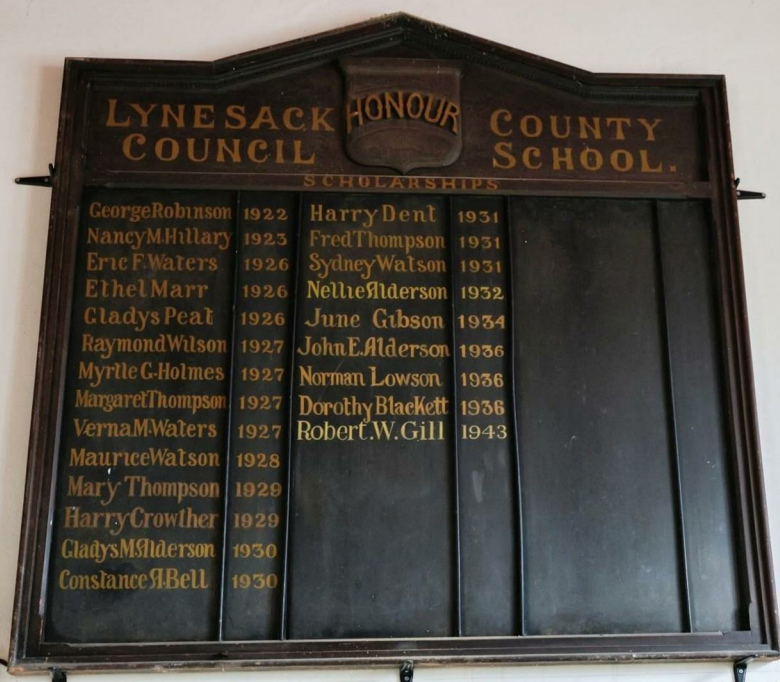 HONOUR
LYNESACK COUNTY
COUNCIL SCHOOL.
SCHOLARSHIPS
George Robinson 1922
Nancy M. Hillary 1923
Eric F. Waters 1926
Ethel Marr 1926
Gladys Peat 1926
Raymond Wilson 1927
Myrtle G. Holmes 1927
Margaret Thompson 1927
Verna M. Waters 1927
Maurice Watson 1928
Mary Thompson 1929
Harry Crowther 1929
Gladys M. Alderson 1930
Constance A. Bell 1930
Harry Dent 1931
Fred Thompson 1931
Sydney Watson 1931
Nellie Alderson 1932
June Gibson 1934
John E. Alderson 1936
Norman Lowson 1936
Dorothy Blackett 1936
Robert. W. Gill 1943